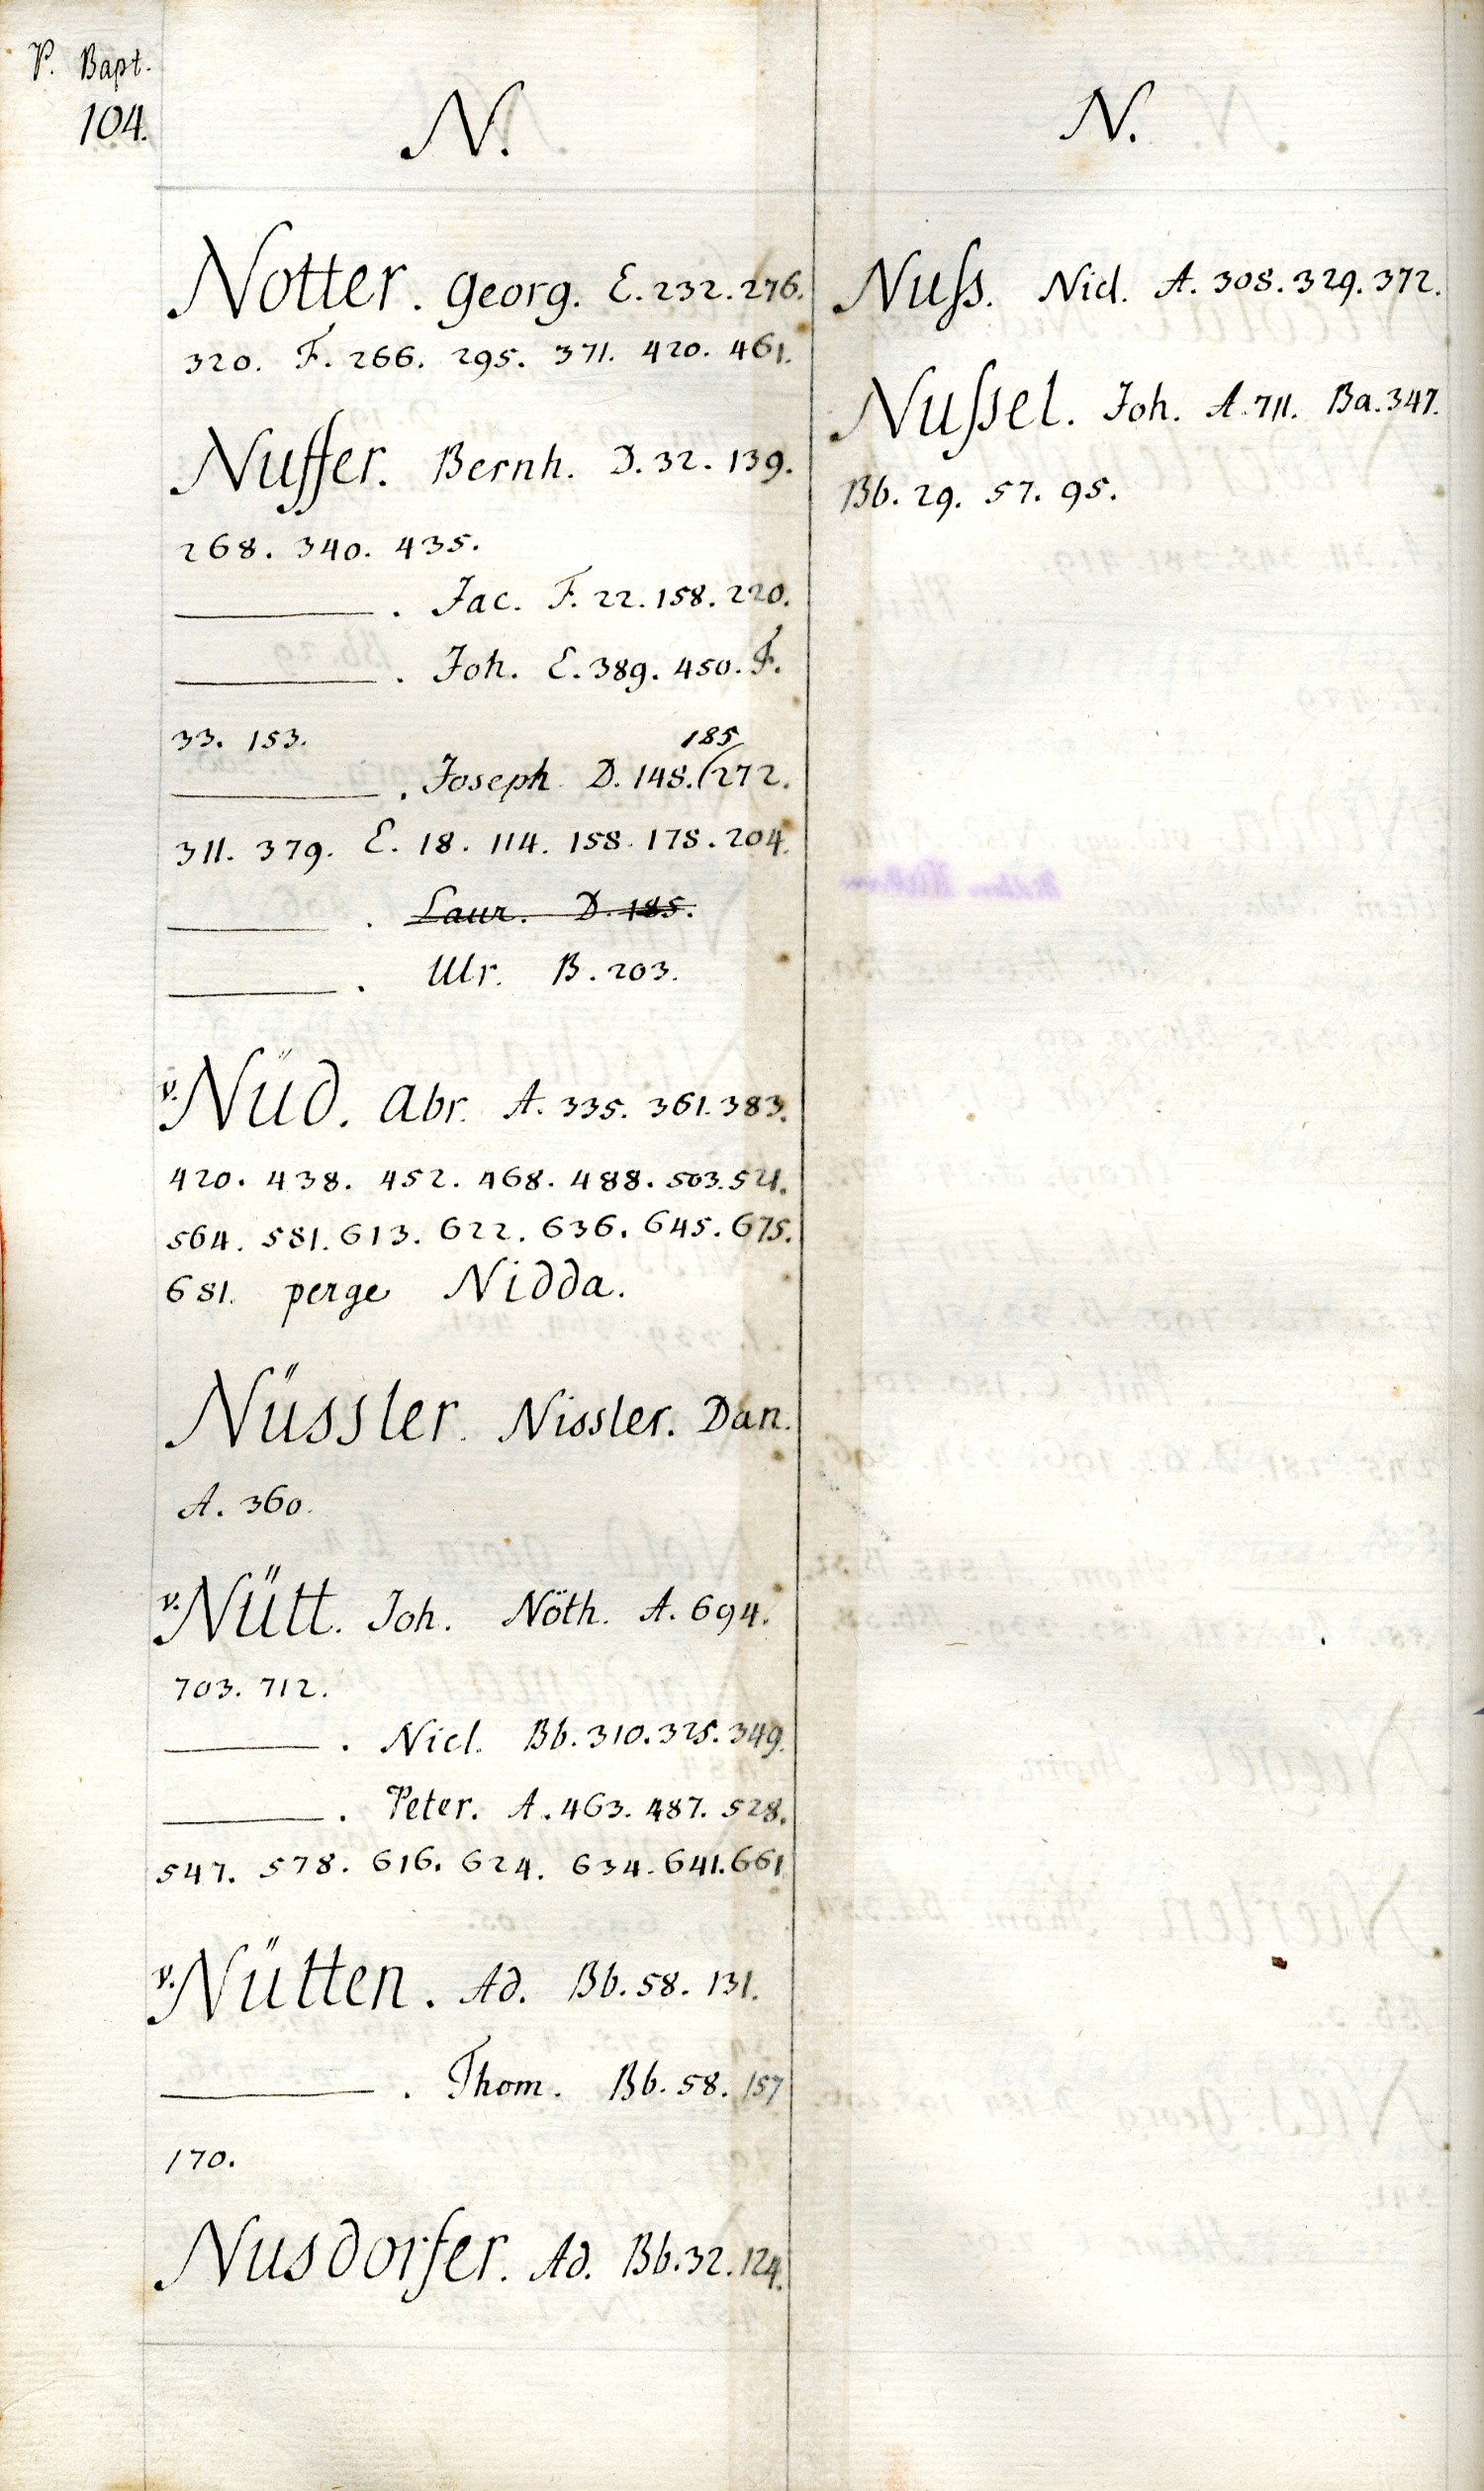 P. Bapt.
104.
N.
Notter. Georg. E. 232. 276.
320. F. 266. 295. 371. 420. 461.
Nuffer. Bernh. D. 32. 139.
268. 340. 435.
———. Jac. F. 22. 158. 220.
———. Joh. E. 389. 450. F.
33. 153.
185
———. Joseph D. 148. (272.
311. 379. E. 18. 114. 158. 178. 204.
———. Laur. D. 185.
———. Ulr. B. 203.
v. Nüd. Abr. A. 335. 361. 383.
420. 438. 452. 468. 488. 503. 521.
564. 581. 613. 622. 636. 645. 675.
681. perge Nidda.
Nüssler. Nissler. Dan.
A. 360.
v. Nütt. Joh. Nöth. A. 694.
703. 712.
———. Nicl. Bb. 310. 325. 349.
———. Peter. A. 463. 487. 528.
547. 578. 616. 624. 634. 641. 661
v. Nütten. Ad. Bb. 58. 131.
———. Thom. Bb. 58. 157
170.
Nusdorfer. Ad. Bb. 32. 124.
N.
Nuſs. Nicl. A. 308. 329. 372.
Nuſsel. Joh. A. 711. Ba. 347.
Bb. 29. 57. 95.